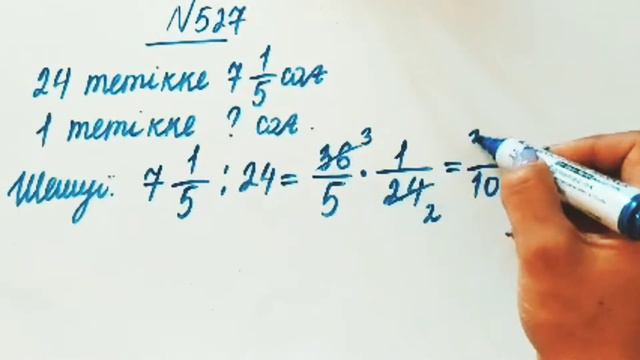 N527
24 тетікке 7 1/5 сағ
1 тетікке ? сағ.
Шешуі: 7 1/5 : 24 = 36/5 3 · 1/24 2 = 3/10